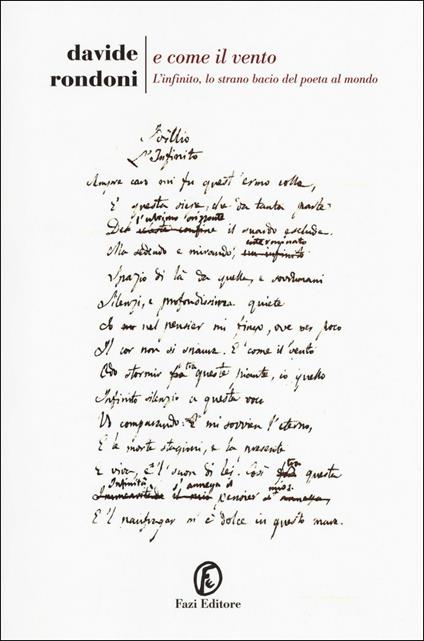 davide rondoni
e come il vento
L'infinito, lo strano bacio del poeta al mondo
Idillio
L'Infinito
Sempre caro mi fu quest'ermo colle,
E questa siepe, che da tanta parte
l'ultimo orizzonte
De celeste confine il guardo esclude.
interminato
Ma sedendo e mirando, un infinito
Spazio di là da quella, e sovrumani
Silenzi, e profondissima quiete
Io nel pensier mi fingo, ove per poco
Il cor non si spaura. E come il vento
tra
Odo stormir fra queste piante, io quello
Infinito silenzio a questa voce
Vo comparando: E mi sovvien l'eterno,
E le morte stagioni, e la presente
tra
E viva, e 'l suon di lei. Così fra questa
Infinità s'annega il mio
Immensitade il mio pensier s'annega,
E 'l naufragar m'è dolce in questo mare.
Fe
Fazi Editore